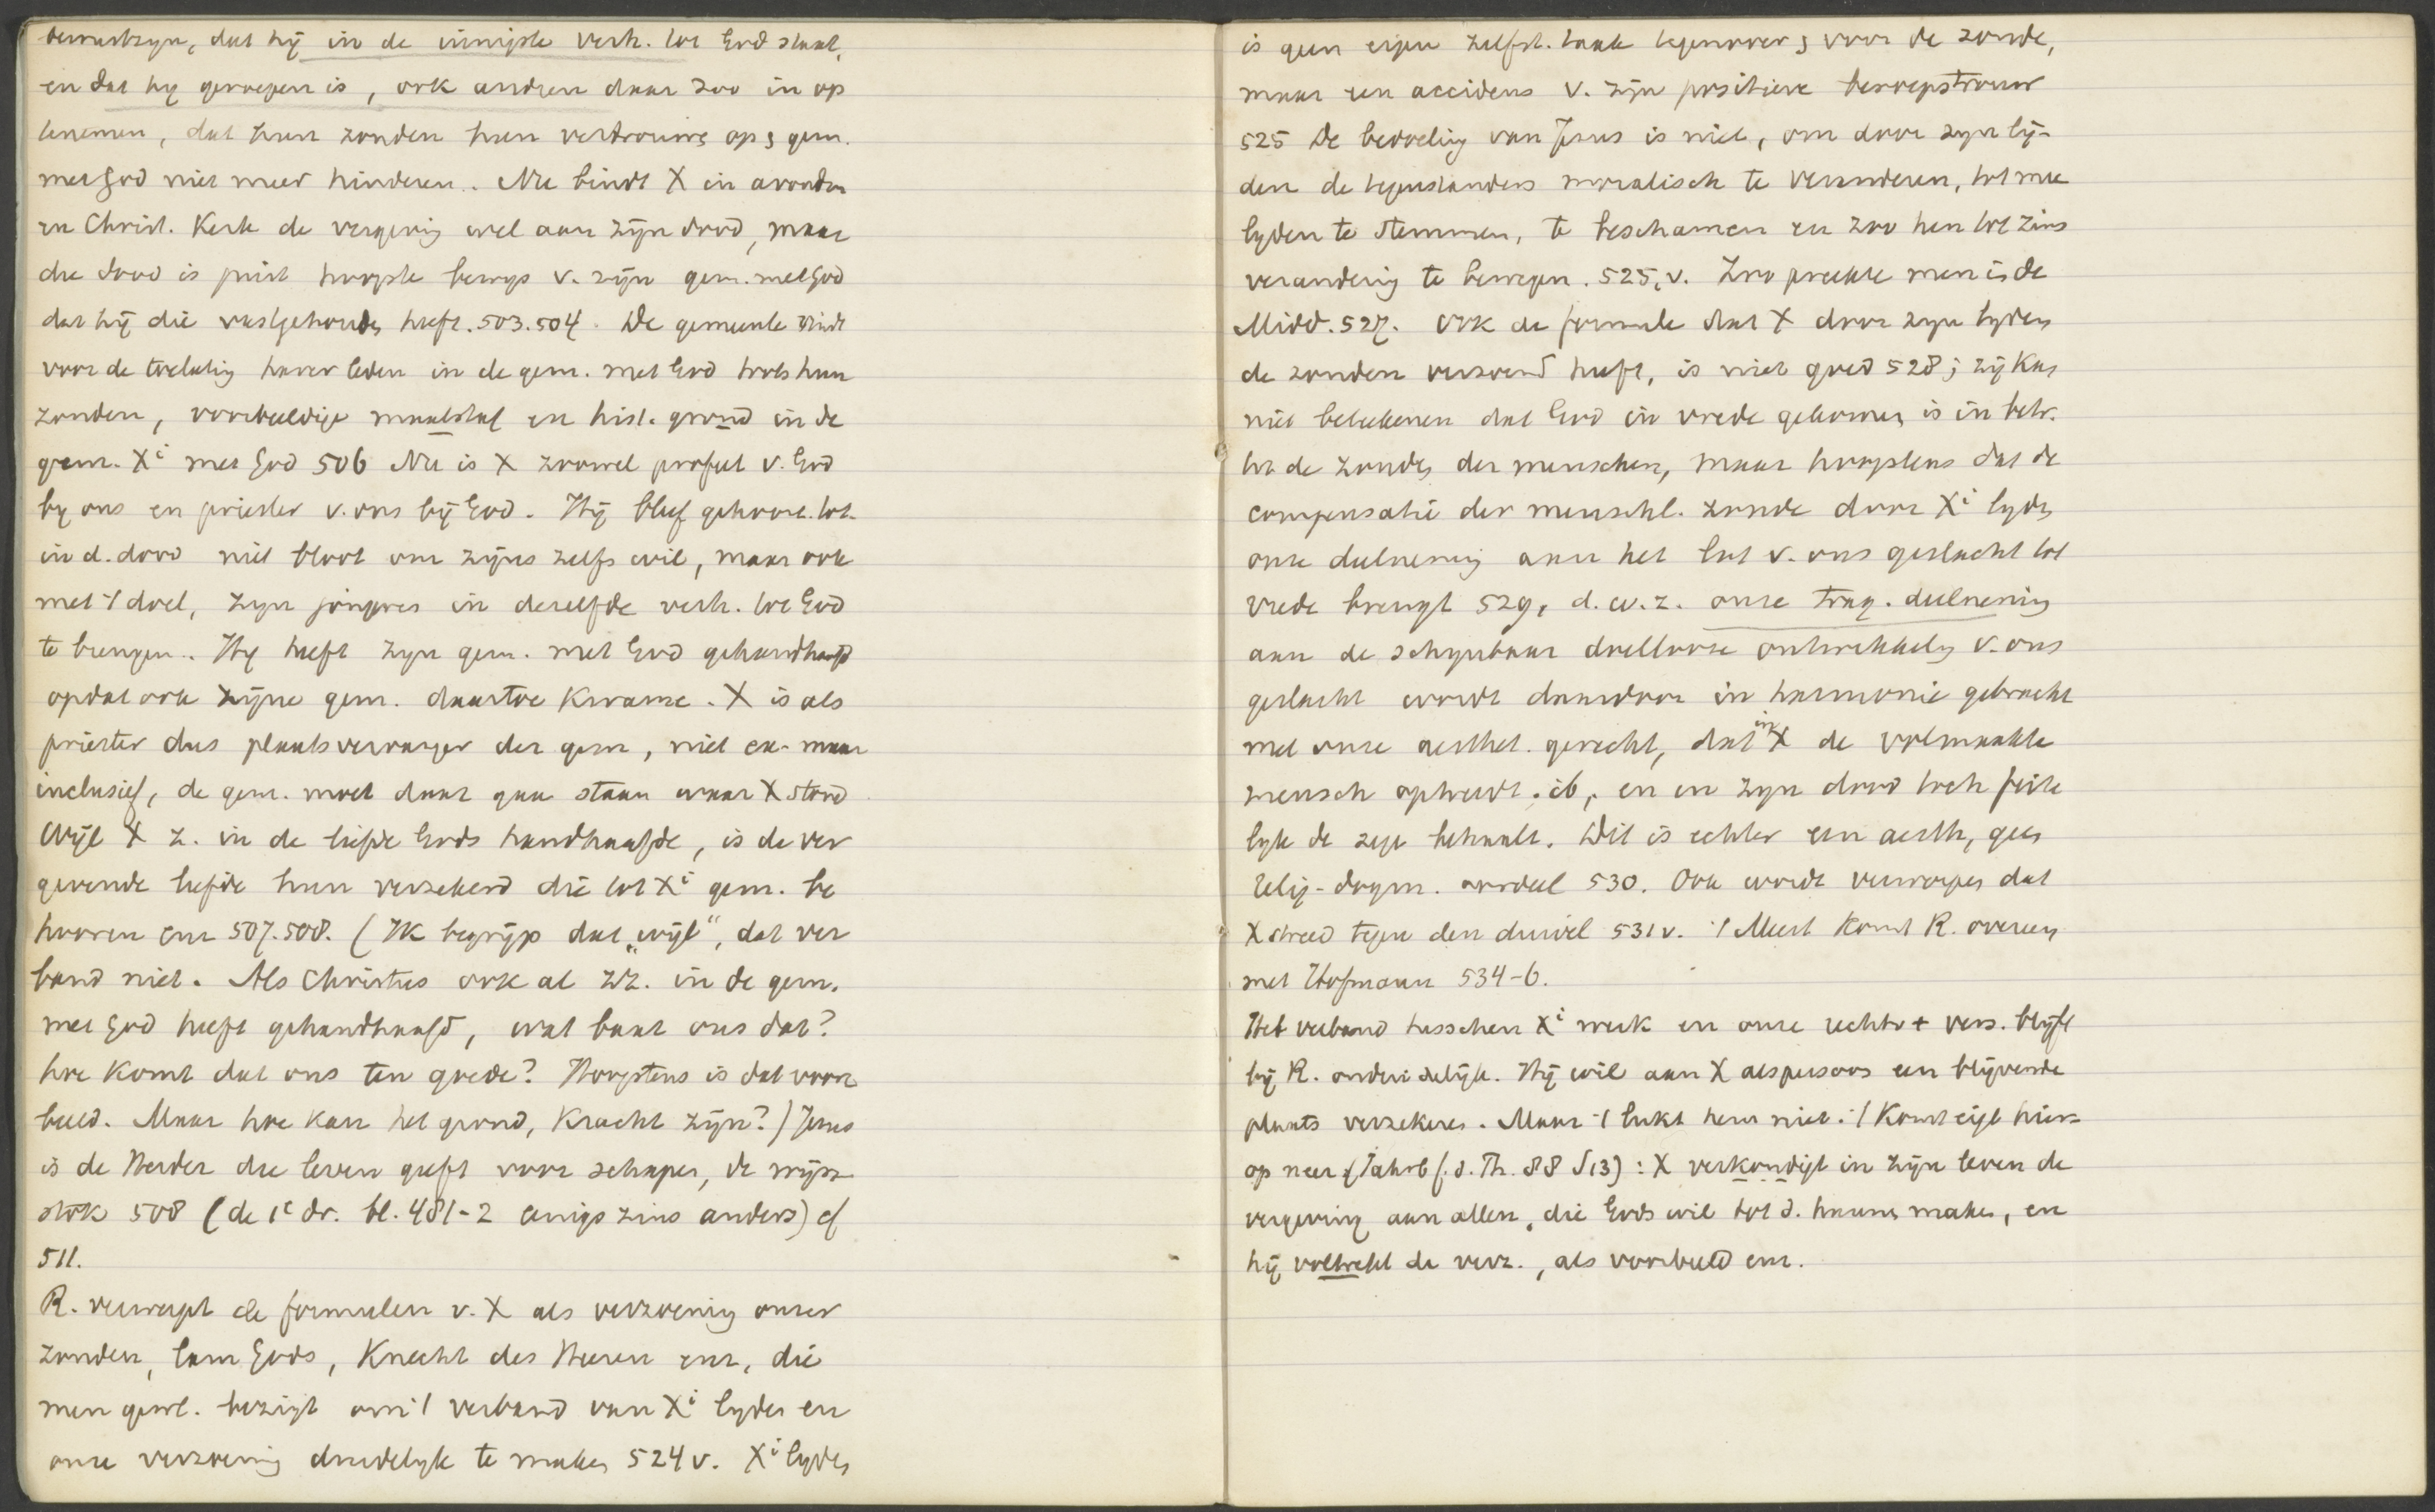 bewustzyn, dat hy in de innigste verh. tot God staat,
en dat hy geroepen is, ook andren daar zoo in op
tenemen, dat hun zonden hun vertrouwe op, gem.
met God niet meer hinderen. Nu bindt X in avondm
en Christ. Kerk de vergeving wel aan zijn dood, maar
die dood is juist hoogste bewys v. zijn gem. met God
dat hij die vastgehouden heeft. 503.504. De gemeente vindt
voor de toelating harer leden in de gem. met God trots hun
zonden, voorbeeldige maatstaf en hist. grond in de
gem. Xi met God 506 Nu is X zoowel profeet v. God
by ons en priester v. ons bij God. Hij bleef gehoorz. tot
in d. dood niet bloot om zijns zelfs wil, maar ook
met 't doel, zyn jongeres in dezelfde verh. tot God
te brengen. Hy heeft zyn gem. met God gehandhaafd
opdat ook zijne gem. daartoe kwame. X is als
priester dus plaatsvervanger der gem, niet ex- maar
inclusief, de gem. moet daar gaan staan waar X stond
Wijl X z. in de liefde Gods handhaafde, is de ver
gevende liefde hun verzekerd die tot Xi gem. be
hooren enz 507.508. (Ik begrijp dat „wijl“, dat ver
band niet. Als Christus ook al zz. in de gem.
met God heeft gehandhaafd, wat baat ons dat?
hoe komt dat ons ten goede? Hoogstens is dat voor
beeld. Maar hoe kan het grond, kracht zijn?) Jezus
is de Herder die leven geeft voor schapen, de wijn
stok 508 (de 1e dr. bl. 481-2 enigszins anders) cf
511.
R. verwerpt de formulen v. X als verzoening onzer
zonden, lam Gods, Knecht des Heeren enz, die
men gewl. bezigt om 't verband van Xi lyden en
onze verzoening duidelyk te maken 524 v. Xi lyden
is geen eigen zelfst. taak tegenover, voor de zonde,
maar een accidens v. zijn positieve beroepstrouw
525 De bedoeling van Jezus is niet, om door zyn lij-
den de tegenstanders moralisch te veranderen, tot mee
lyden te stemmen, te beschamen en zoo hen tot zins
verandering te bewegen. 525,v. Zoo preekte men i. de
Midd. 527. Ook de formule dat X door zyn lyden
de zonden verzoend heeft, is niet goed 528; zij kan
niet beteekenen dat God in vrede gekomen is in betr.
tot de zonden der menschen, maar hoogstens dat de
compensatie der menschl. zonde door Xi lyden
onze deelneming aan het lot v. ons geslacht tot
vrede brengt 529, d.w.z. onze trag. deelneming
aan de schynbaar doellooze ontwikkeling v. ons
geslacht wordt daardoor in harmonie gebracht
met onze aesthet. gericht, dat in X de volmaakte
mensch optreedt. ib, en in zyn dood toch feite
lyk de zege behaalt. Dit is echter een aesth, geen
relig-dogm. oordeel 530. Ook wordt verworpen dat
X streed tegen den duivel 531 v. 't Meest komt R. overeen
met Hofmann 534-6.
Het verband tusschen Xi werk en onze rechtv + verz. blijft
bij R. onduidelijk. Hij wil aan X als persoon een blijvende
plaats verzekeren. Maar 't lukt hem niet. 't Komt eigl hier-
op neer (Jahrb f. d. Th. 88 S 13): X verkondigt in zijn leven de
vergeving aan allen, die Gods wil tot d. hunne maken, en
hij voltrekt de verz., als voorbeeld enz.